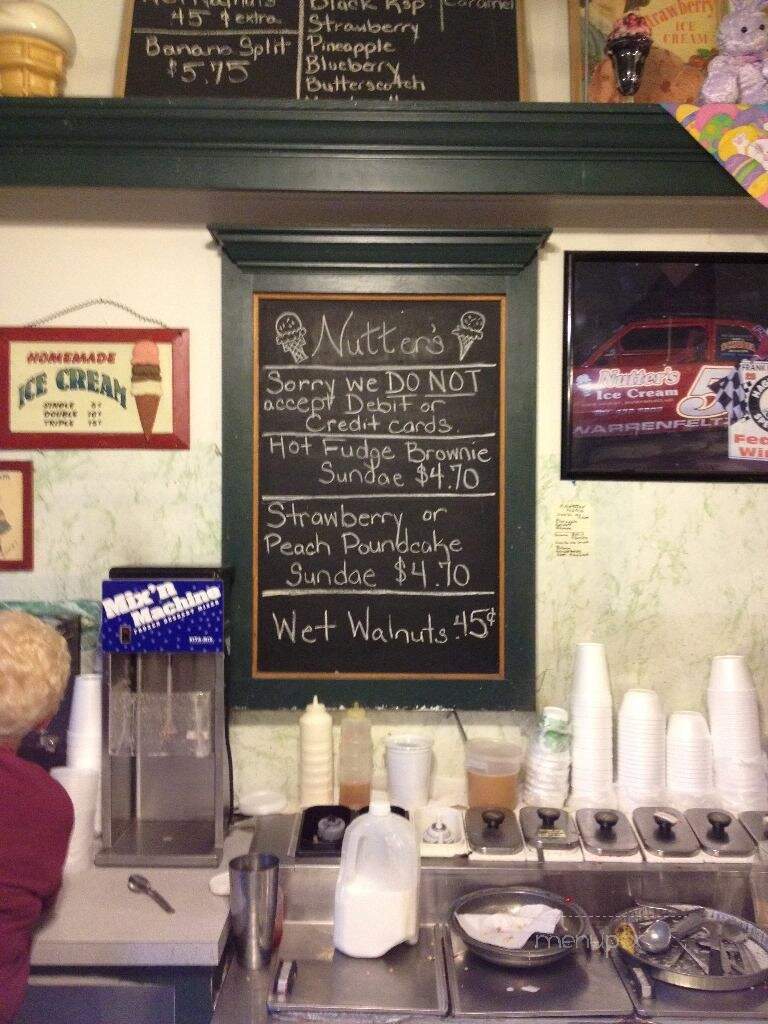 45¢ extra
Banana Split
$5.75
Black Rsp
Strawberry
Pineapple
Blueberry
Butterscotch
Caramel
Strawberry
ICE
CREAM
Nutter's
Sorry we DO NOT
accept Debit or
Credit cards.
Hot Fudge Brownie
Sundae $4.70
Strawberry or
Peach Poundcake
Sundae $4.70
Wet Walnuts .45¢
HOMEMADE
ICE CREAM
SINGLE 5¢
DOUBLE 10¢
TRIPLE 15¢
Nutter's
Ice Cream
5
WARRENFELTZ
Mix'n
Machine
menupix